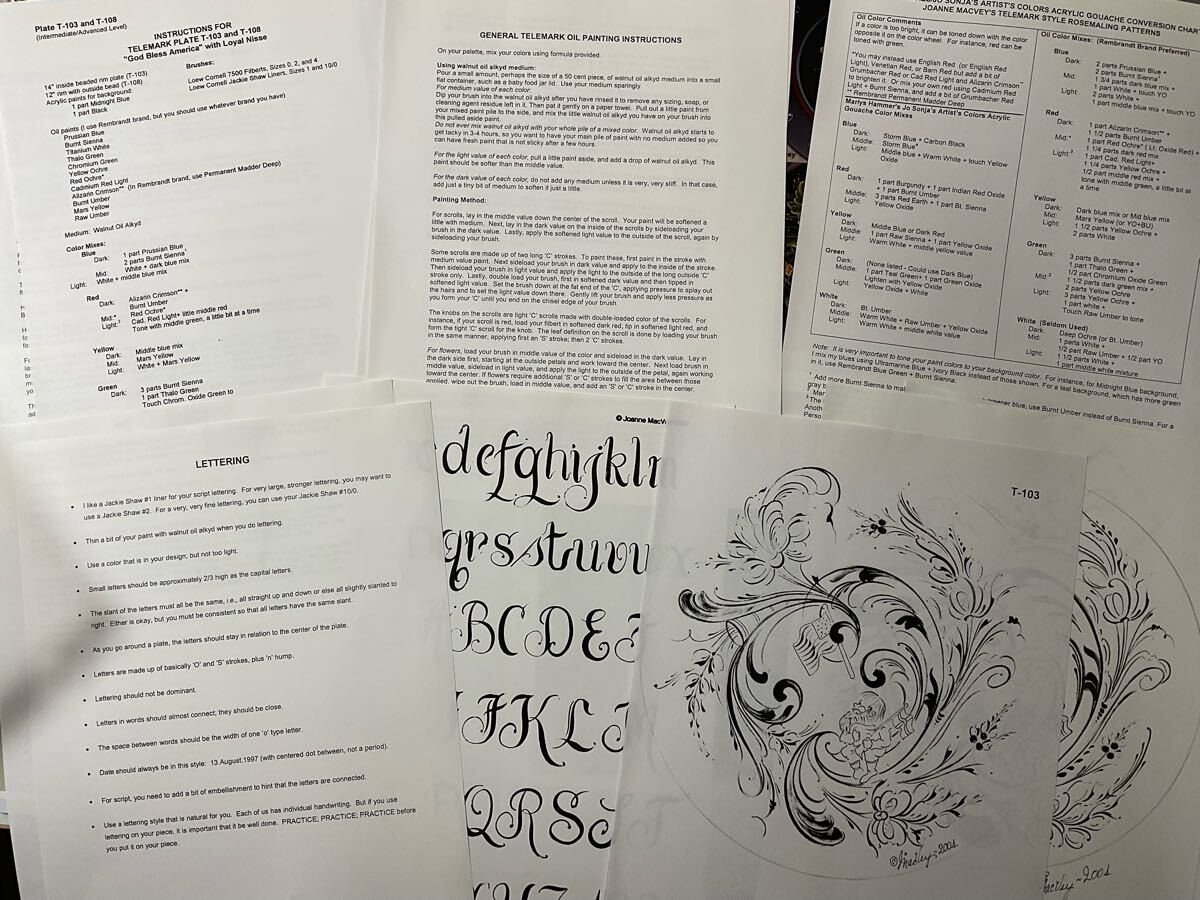 Plate T-103 and T-108
(Intermediate/Advanced Level)
INSTRUCTIONS FOR
TELEMARK PLATE T-103 and T-108
"God Bless America" with Loyal Nisse
14" inside beaded rim plate (T-103)
12" rim with outside bead (T-108)
Acrylic paints for background:
1 part Midnight Blue
1 part Black
Brushes:
Loew Cornell 7500 Filberts, Sizes 0, 2, and 4
Loew Cornell Jackie Shaw Liners, Sizes 1 and 10/0
Oil paints (I use Rembrandt brand, but you should use whatever brand you have)
Prussian Blue
Burnt Sienna
Titanium White
Thalo Green
Chromium Green
Yellow Ochre
Red Ochre*
Cadmium Red Light
Alizarin Crimson** (In Rembrandt brand, use Permanent Madder Deep)
Burnt Umber
Mars Yellow
Raw Umber
Medium: Walnut Oil Alkyd
Color Mixes:
Blue
Dark: 1 part Prussian Blue
2 parts Burnt Sienna¹
Mid: White + dark blue mix
Light: White + middle blue mix
Red
Dark: Alizarin Crimson** +
Burnt Umber
Mid:* Red Ochre*
Light:³ Cad. Red Light+ little middle red
Tone with middle green, a little bit at a time
Yellow
Dark: Middle blue mix
Mid: Mars Yellow
Light: White + Mars Yellow
Green
Dark: 3 parts Burnt Sienna
1 part Thalo Green
Touch Chrom. Oxide Green to
GENERAL TELEMARK OIL PAINTING INSTRUCTIONS
On your palette, mix your colors using formula provided.
Using walnut oil alkyd medium:
Pour a small amount, perhaps the size of a 50 cent piece, of walnut oil alkyd medium into a small
flat container, such as a baby food jar lid. Use your medium sparingly.
For medium value of each color:
Dip your brush into the walnut oil alkyd after you have rinsed it to remove any sizing, soap, or
cleaning agent residue left in it. Then pat it gently on a paper towel. Pull out a little paint from
your mixed paint pile to the side, and mix the little walnut oil alkyd you have on your brush into
this pulled aside paint.
Do not ever mix walnut oil alkyd with your whole pile of a mixed color. Walnut oil alkyd starts to
get tacky in 3-4 hours, so you want to have your main pile of paint with no medium added so you
can have fresh paint that is not sticky after a few hours.
For the light value of each color, pull a little paint aside, and add a drop of walnut oil alkyd. This
paint should be softer than the middle value.
For the dark value of each color, do not add any medium unless it is very, very stiff. In that case,
add just a tiny bit of medium to soften it just a little.
Painting Method:
For scrolls, lay in the middle value down the center of the scroll. Your paint will be softened a
little with medium. Next, lay in the dark value on the inside of the scrolls by sideloading your
brush in the dark value. Lastly, apply the softened light value to the outside of the scroll, again by
sideloading your brush.
Some scrolls are made up of two long 'C' strokes. To paint these, first paint in the stroke with
medium value paint. Next sideload your brush in dark value and apply to the inside of the stroke.
Then sideload your brush in light value and apply the light to the outside of the long outside 'C'
stroke only. Lastly, double load your brush, first in softened dark value and then tipped in
softened light value. Set the brush down at the fat end of the 'C', applying pressure to splay out
the hairs and to set the light value down there. Gently lift your brush and apply less pressure as
you form your 'C' until you end on the chisel edge of your brush.
The knobs on the scrolls are tight 'C' scrolls made with double-loaded color of the scrolls. For
instance, if your scroll is red, load your filbert in softened dark red, tip in softened light red, and
form the tight 'C' scroll for the knob. The leaf definition on the scroll is done by loading your brush
in the same manner, applying first an 'S' stroke; then 2 'C' strokes.
For flowers, load your brush in middle value of the color and sideload in the dark value. Lay in
the dark side first, starting at the outside petals and work toward the center. Next load brush in
middle value, sideload in light value, and apply the light to the outside of the petal, again working
toward the center. If flowers require additional 'S' or 'C' strokes to fill the area between those
applied, wipe out the brush, load in middle value, and add an 'S' or 'C' stroke in the center.
SONJA'S ARTIST'S COLORS ACRYLIC GOUACHE CONVERSION CHART
JOANNE MACVEY'S TELEMARK STYLE ROSEMALING PATTERNS
Oil Color Comments
If a color is too bright, it can be toned down with the color
opposite it on the color wheel. For instance, red can be
toned with green.
*You may instead use English Red (or English Red
Light), Venetian Red, or Barn Red but add a bit of
Grumbacher Red or Cad Red Light and Alizarin Crimson
to brighten it. Or mix your own red using Cadmium Red
Light + Burnt Sienna, and add a bit of Grumbacher Red
** Rembrandt Permanent Madder Deep
Marlys Hammer's Jo Sonja's Artist's Colors Acrylic
Gouache Color Mixes
Blue
Dark: Storm Blue + Carbon Black
Middle: Storm Blue*
Light: Middle blue + Warm White + touch Yellow
Oxide
Red
Dark: 1 part Burgundy + 1 part Indian Red Oxide
+ 1 part Burnt Umber
Middle: 3 parts Red Earth + 1 part Bt. Sienna
Light: Yellow Oxide
Yellow
Dark: Middle Blue or Dark Red
Middle: 1 part Raw Sienna + 1 part Yellow Oxide
Light: Warm White + middle yellow value
Green
Dark: (None listed - Could use Dark Blue)
Middle: 1 part Teal Green + 1 part Green Oxide
Lighten with Yellow Oxide
Light: Yellow Oxide + White
White
Dark: Bt. Umber
Middle: Warm White + Raw Umber + Yellow Oxide
Light: Warm White + middle white value
Oil Color Mixes: (Rembrandt Brand Preferred)
Blue
Dark: 2 parts Prussian Blue +
2 parts Burnt Sienna¹
Mid: 1 3/4 parts dark blue mix +
1 part White + touch YO
Light: 2 parts White +
1 part middle blue mix + touch YO
Red
Dark: 1 part Alizarin Crimson** +
1 1/2 parts Burnt Umber
Mid:* 1 part Red Ochre* (Lt. Oxide Red) +
1 1/4 parts dark red mix
Light:³ 1 part Cad. Red Light+
1 1/4 parts Yellow Ochre +
1/2 part middle red mix +
tone with middle green, a little bit at
a time
Yellow
Dark: Dark blue mix or Mid blue mix
Mid: Mars Yellow (or YO+BU)
Light: 1 1/2 parts Yellow Ochre +
2 parts White
Green
Dark: 3 parts Burnt Sienna +
1 part Thalo Green +
1/2 part Chromium Oxide Green
Mid:² 1 1/2 parts dark green mix +
2 parts Yellow Ochre
Light: 3 parts Yellow Ochre +
1 part white +
Touch Raw Umber to tone
White (Seldom Used)
Dark: Deep Ochre (or Bt. Umber)
Mid: 1 parts White +
1/2 part Raw Umber + 1/2 part YO
Light: 1 1/2 parts White +
1 part middle white mixture
Note: It is very important to tone your paint colors to your background color. For instance, for Midnight Blue background,
I mix my blues using Ultramarine Blue + Ivory Black instead of those shown. For a teal background, which has more green
in it, use Rembrandt Blue Green + Burnt Sienna.
¹ Add more Burnt Sienna to
greener blue, use Burnt Umber instead of Burnt Sienna. For a
LETTERING
• I like a Jackie Shaw #1 liner for your script lettering. For very large, stronger lettering, you may want to
use a Jackie Shaw #2. For a very, very fine lettering, you can use your Jackie Shaw #10/0.
• Thin a bit of your paint with walnut oil alkyd when you do lettering.
• Use a color that is in your design; but not too light.
• Small letters should be approximately 2/3 high as the capital letters.
• The slant of the letters must all be the same, i.e., all straight up and down or else all slightly slanted to
right. Either is okay, but you must be consistent so that all letters have the same slant.
• As you go around a plate, the letters should stay in relation to the center of the plate.
• Letters are made up of basically 'O' and 'S' strokes, plus 'n' hump.
• Lettering should not be dominant.
• Letters in words should almost connect; they should be close.
• The space between words should be the width of one 'o' type letter.
• Date should always be in this style: 13.August.1997 (with centered dot between, not a period).
• For script, you need to add a bit of embellishment to hint that the letters are connected.
• Use a lettering style that is natural for you. Each of us has individual handwriting. But if you use
lettering on your piece, it is important that it be well done. PRACTICE; PRACTICE; PRACTICE before
you put it on your piece.
© Joanne MacV
defghijkl
qrsstuvv
BCDE
JKL
QRS
T-103
©Macvey-2001
acvey-2001